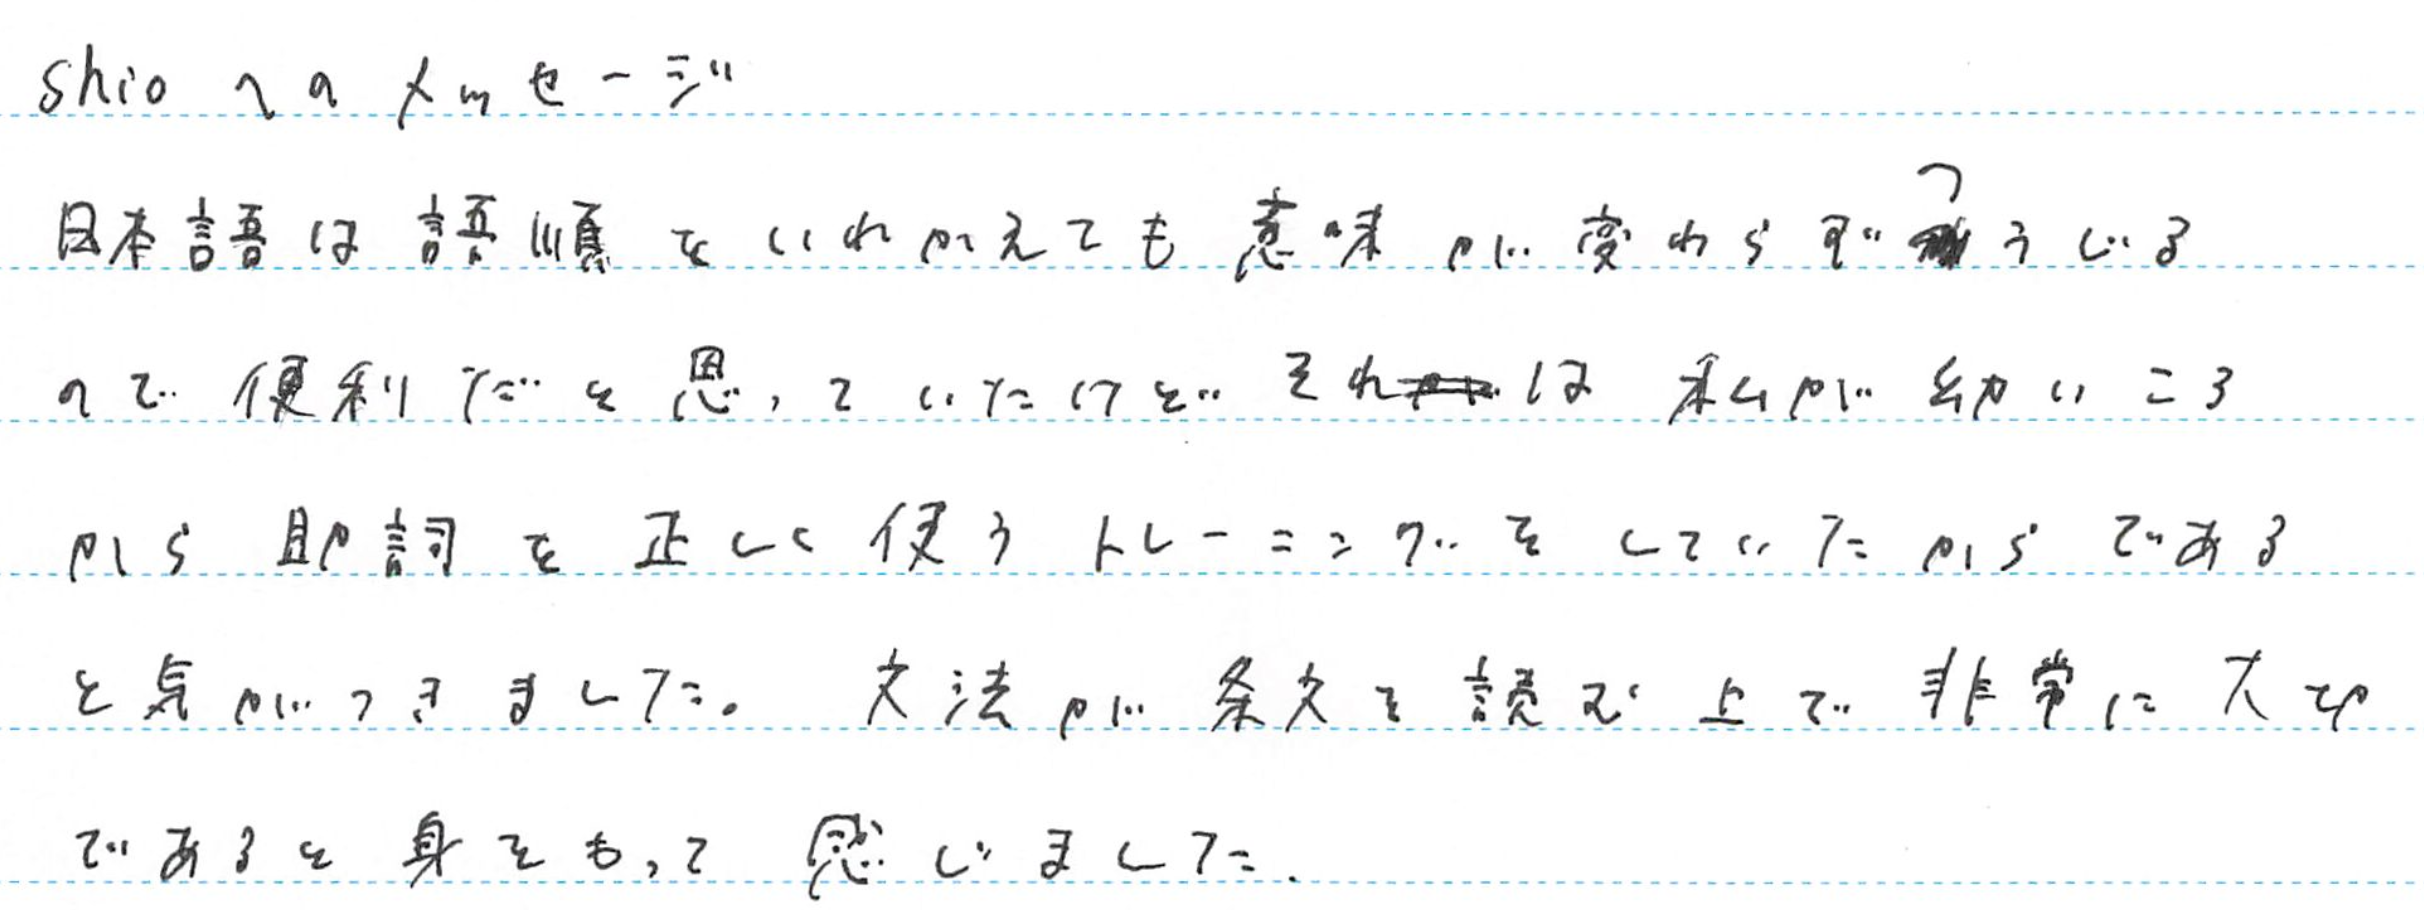 shioへのメッセージ
日本語は語順をいれかえても意味が変わらずつうじる
ので便利だと思っていたけど それは私が幼いころ
から助詞を正しく使うトレーニングをしていたからである
と気がつきました。文法が条文を読む上で非常に大切
であると身をもって感じました.